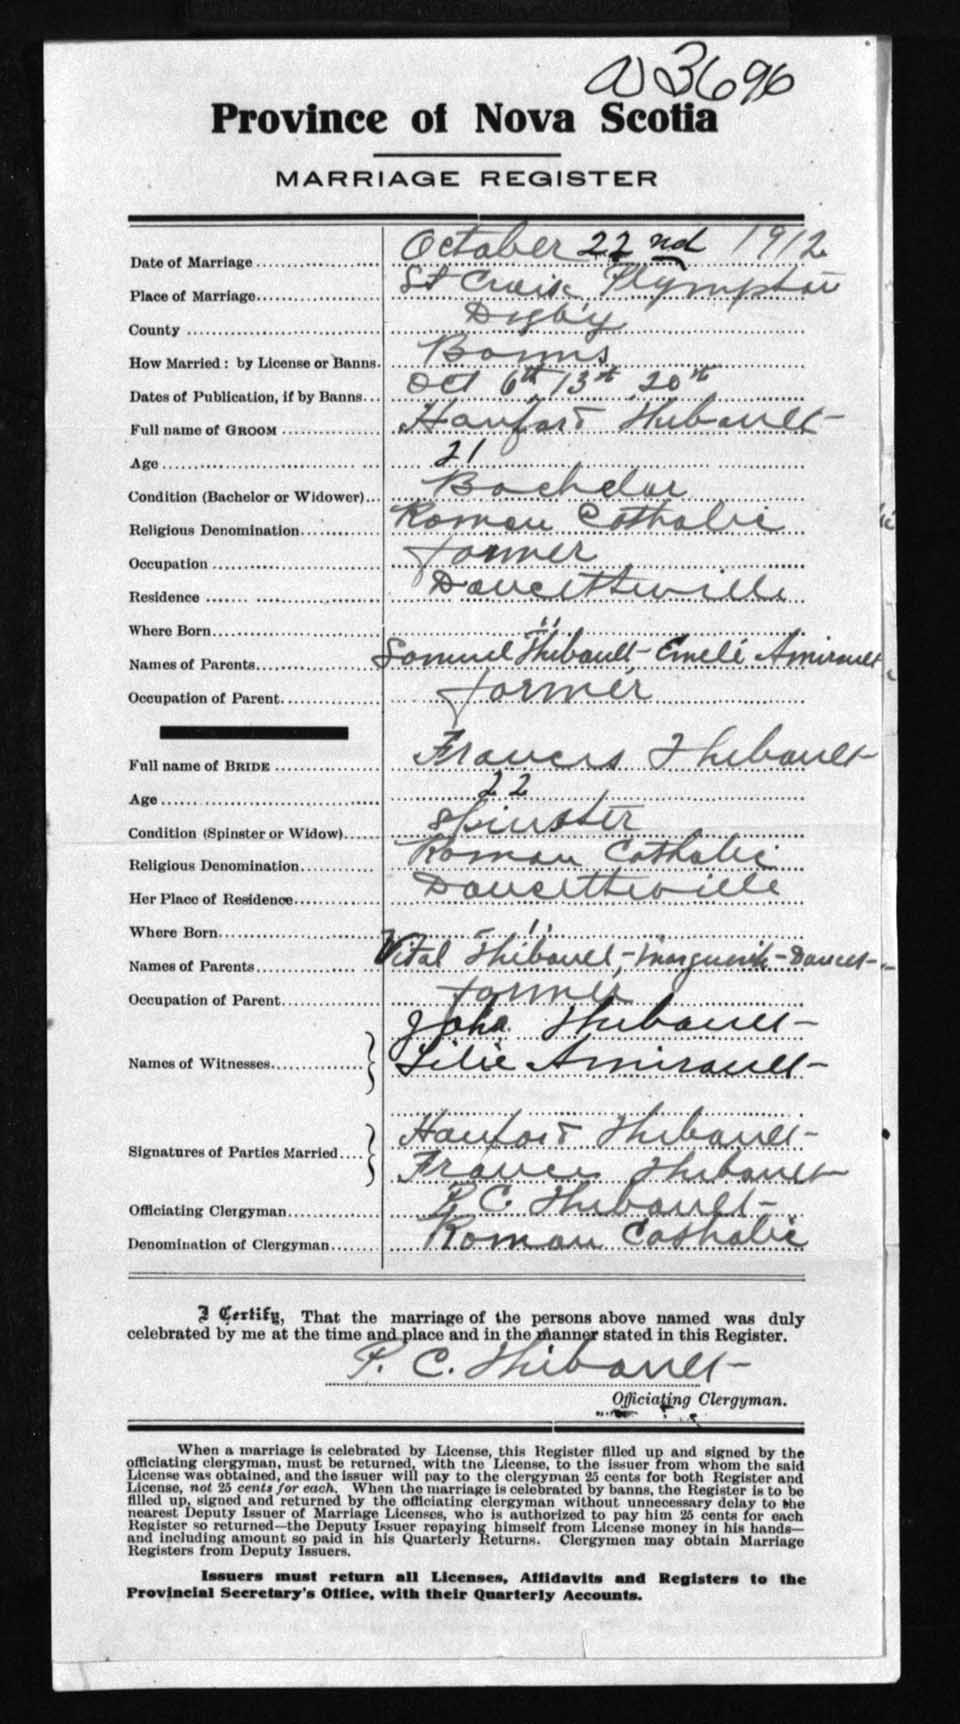 a 3696
Province of Nova Scotia
MARRIAGE REGISTER
Date of Marriage October 22nd 1912
Place of Marriage St Croix Plympton
County Digby
How Married: by License or Banns. Banns
Dates of Publication, if by Banns Oct 6th 13th 20th
Full name of GROOM Hanford Thibault
Age 21
Condition (Bachelor or Widower) Bachelor
Religious Denomination Roman Catholic
Occupation farmer
Residence Doucetteville
Where Born "
Names of Parents Samuel Thibault - Emelé Amirault
Occupation of Parent farmer
Full name of BRIDE Frances Thibault
Age 22
Condition (Spinster or Widow) Spinster
Religious Denomination Roman Catholic
Her Place of Residence Doucetteville
Where Born "
Names of Parents Vital Thibault - Marguerite - Doucet -
Occupation of Parent farmer
Names of Witnesses John Thibault -
Lilie Amirault -
Signatures of Parties Married Hanford Thibault -
Frances Thibault
Officiating Clergyman P. C. Thibault -
Denomination of Clergyman Roman Catholic
I Certify, That the marriage of the persons above named was duly
celebrated by me at the time and place and in the manner stated in this Register.
P. C. Thibault -
Officiating Clergyman.
When a marriage is celebrated by License, this Register filled up and signed by the
officiating clergyman, must be returned, with the License, to the issuer from whom the said
License was obtained, and the issuer will pay to the clergyman 25 cents for both Register and
License, not 25 cents for each. When the marriage is celebrated by banns, the Register is to be
filled up, signed and returned by the officiating clergyman without unnecessary delay to the
nearest Deputy Issuer of Marriage Licenses, who is authorized to pay him 25 cents for each
Register so returned—the Deputy Issuer repaying himself from License money in his hands—
and including amount so paid in his Quarterly Returns. Clergymen may obtain Marriage
Registers from Deputy Issuers.
Issuers must return all Licenses, Affidavits and Registers to the
Provincial Secretary's Office, with their Quarterly Accounts.